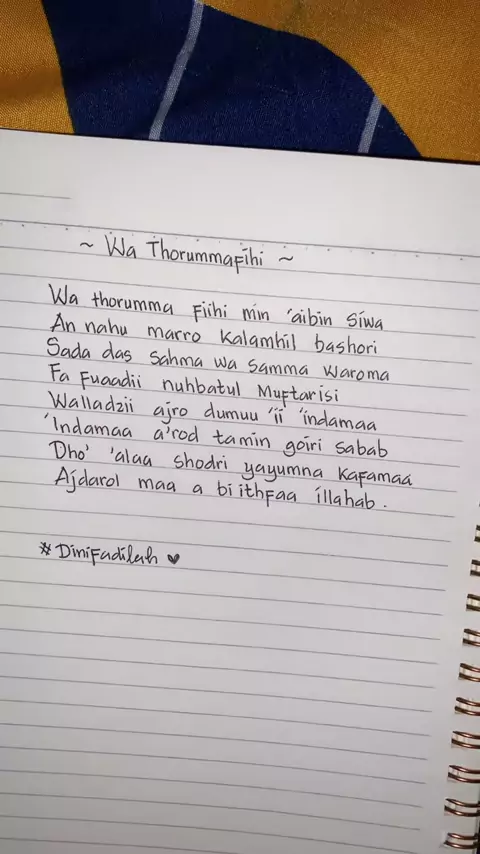 ~ Wa Thorummafihi ~
Wa thorumma fiihi min 'aibin siwa
An nahu marro kalamhil bashori
Sada das sahma wa samma waroma
Fa fuaadii nuhbatul muftarisi
Walladzii ajro dumuu 'ii 'indamaa
'Indamaa a'rod tamin goiri sabab
Dho' 'alaa shodri yayumna kafamaa
Ajdarol maa a biithfaa illahab.
#Dinifadilah ♥